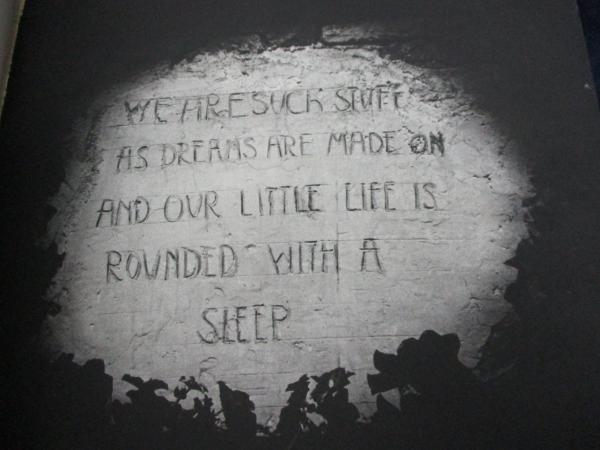 WE ARE SUCH STUFF
AS DREAMS ARE MADE ON
AND OUR LITTLE LIFE IS
ROUNDED WITH A
SLEEP